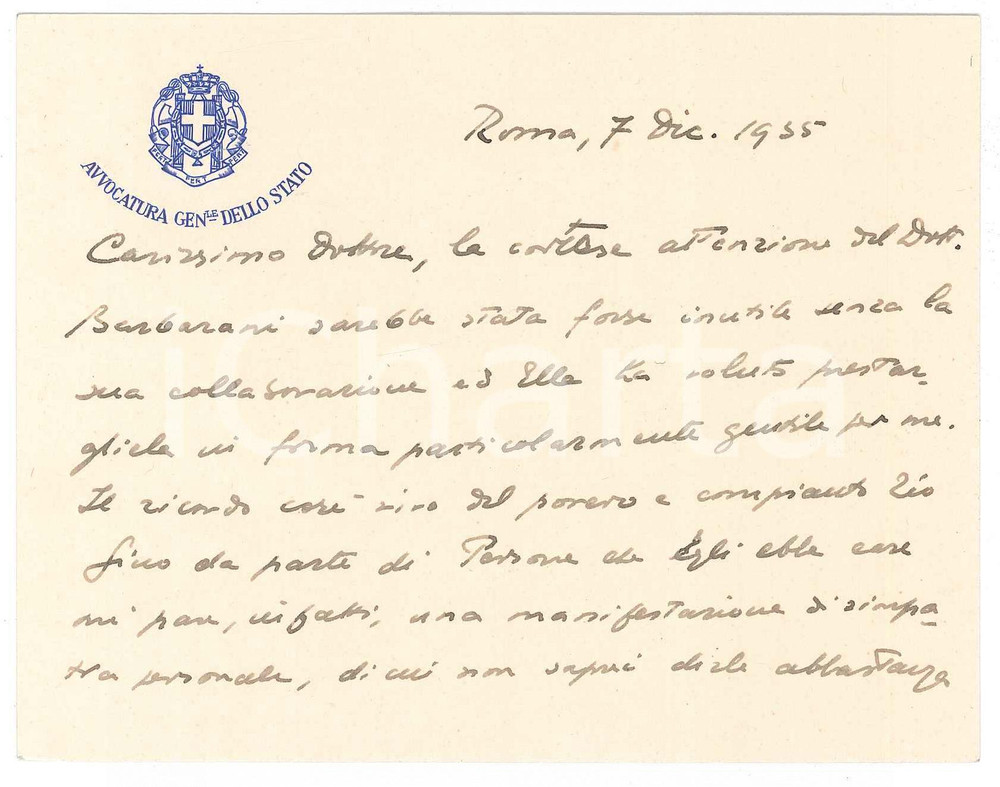 FERT FERT FERT
AVVOCATURA GENLE DELLO STATO
Roma, 7 Dic. 1935
Carissimo Dottore, la cortese attenzione del Dott.
Barbarani sarebbe stata forse inutile senza la
sua collaborazione ed Ella ha voluto prestar-
gliela in forma particolarmente gentile per me.
Il ricordo così vivo del povero e compianto Zio
Gino da parte di Persone che Egli ebbe care
mi pare, infatti, una manifestazione di simpa-
tia personale, di cui non saprei dirle abbastanza
iCharta